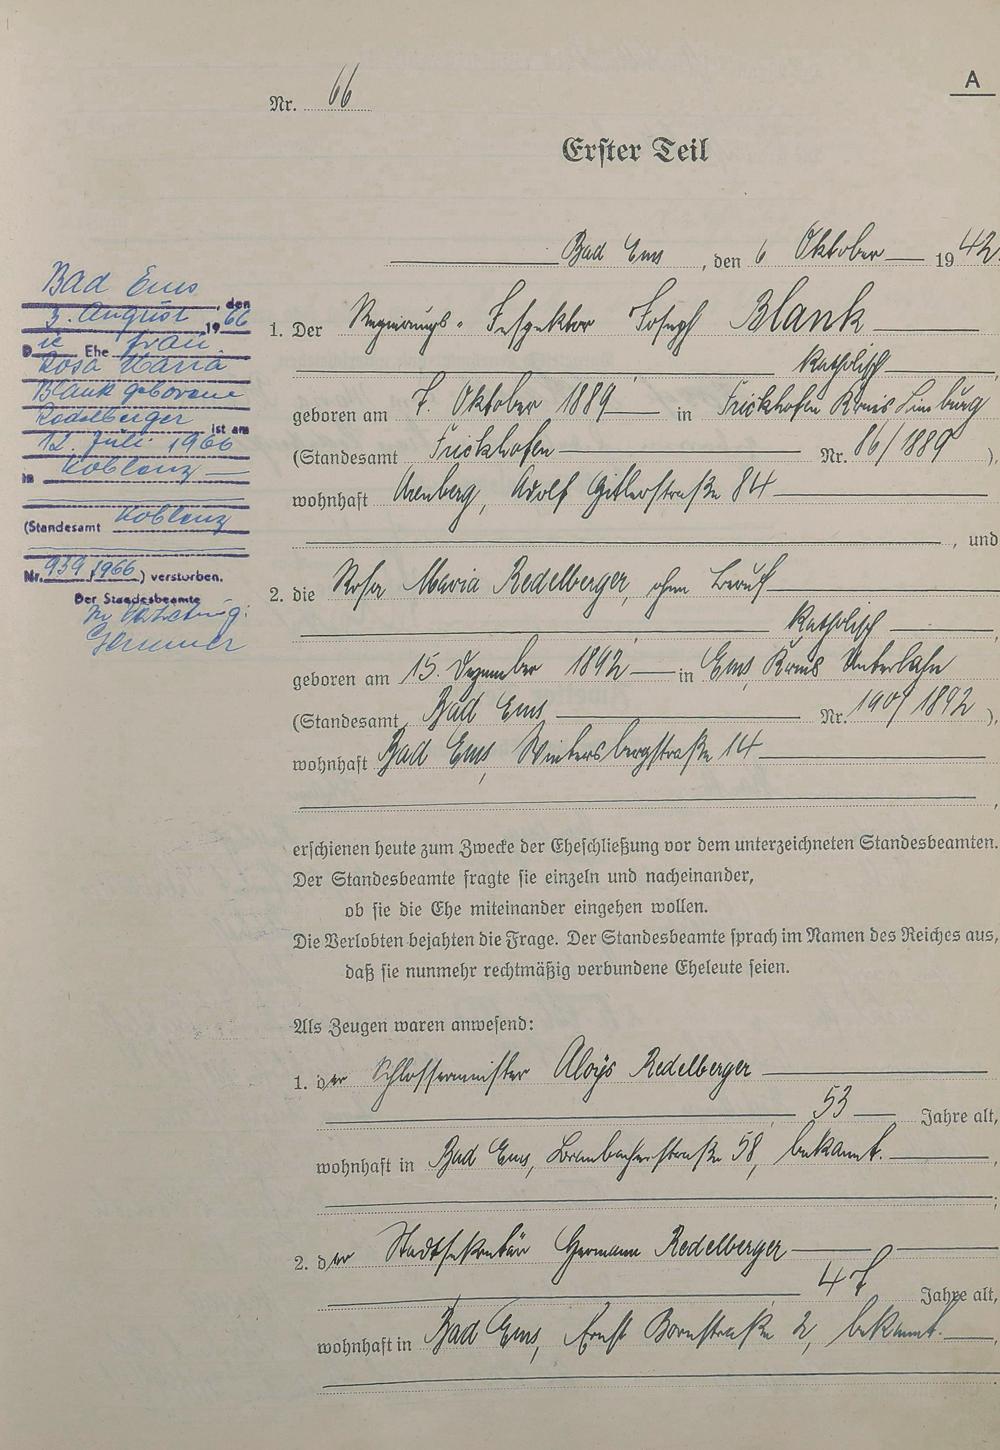 A
Nr. 66
Erster Teil
Bad Ems, den 6 Oktober 1942.
1. Der Regierungs-Inspektor Joseph Blank
katholisch,
geboren am 7. Oktober 1889 in Frickhofen Kreis Limburg
(Standesamt Frickhofen Nr. 86/1889),
wohnhaft Arenberg, Adolf Hitlerstraße 84
, und
2. die Rosa Maria Redelberger, ohne Beruf
katholisch
geboren am 15. Dezember 1892 in Ems, Kreis Unterlahn
(Standesamt Bad Ems Nr. 190/1892),
wohnhaft Bad Ems, Wintersbergstraße 14
,
erschienen heute zum Zwecke der Eheschließung vor dem unterzeichneten Standesbeamten.
Der Standesbeamte fragte sie einzeln und nacheinander,
ob sie die Ehe miteinander eingehen wollen.
Die Verlobten bejahten die Frage. Der Standesbeamte sprach im Namen des Reiches aus,
daß sie nunmehr rechtmäßig verbundene Eheleute seien.
Als Zeugen waren anwesend:
1. der Schlossermeister Aloys Redelberger
53 Jahre alt,
wohnhaft in Bad Ems, Braubacherstraße 58, bekannt.
2. der Stadtsekretär Hermann Redelberger
47 Jahre alt,
wohnhaft in Bad Ems, Ernst Bornstraße 2, bekannt.
Bad Ems, den
3. August 1966
Die Ehefrau
Rosa Maria
Blank geborene
Redelberger ist am
12. Juli 1966
in Koblenz
(Standesamt Koblenz
Nr. 939/1966) verstorben.
Der Standesbeamte
In Vertretung: